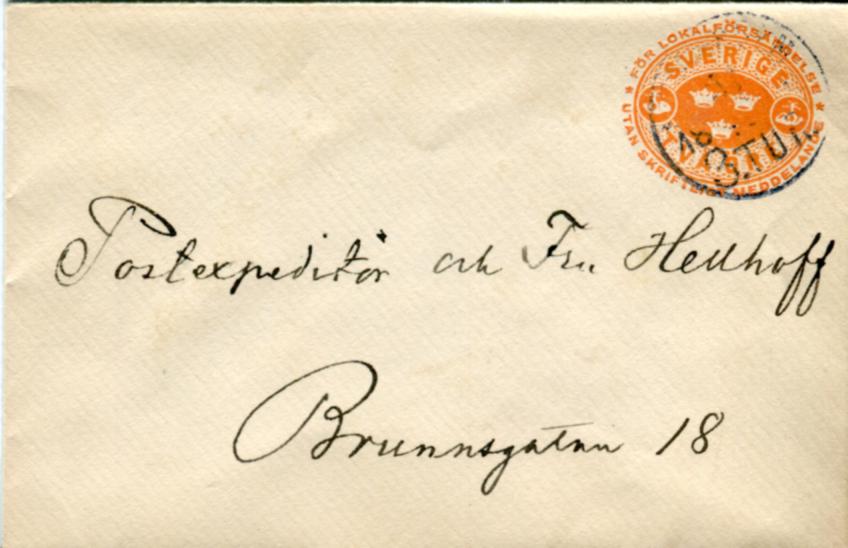 * FÖR LOKALFÖRSÄNDELSE *
SVERIGE
UTAN SKRIFTLIGT MEDDELANDE
TUR
Postexpeditör och Fru Hellhoff
Brunnsgatan 18